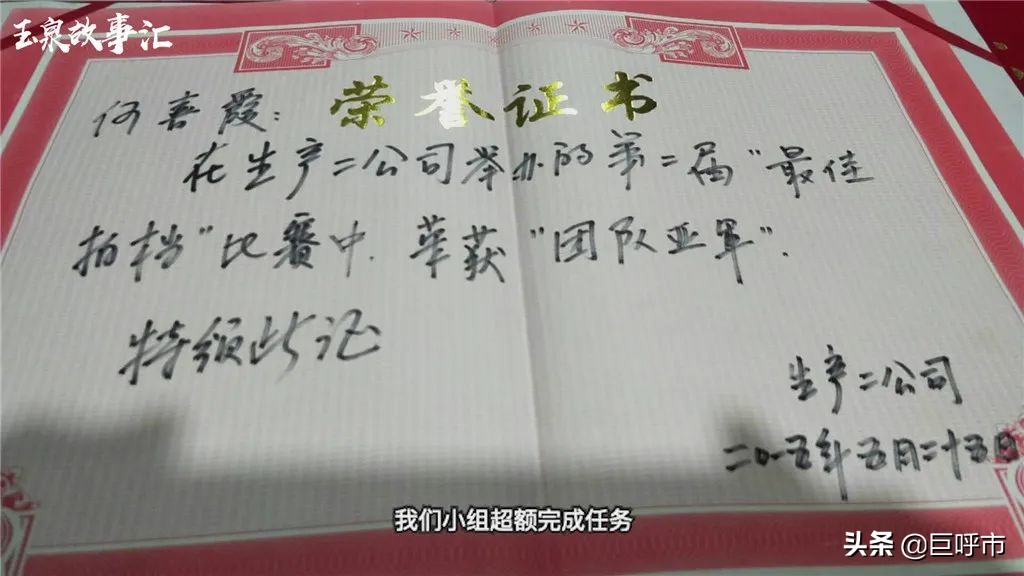 玉泉故事汇
荣誉证书
何喜霞:
在生产二公司举办的第二届"最佳
拍档"比赛中.荣获"团队亚军".
特颁此证
生产二公司
二〇一五年五月二十五日
我们小组超额完成任务
头条 @巨呼市